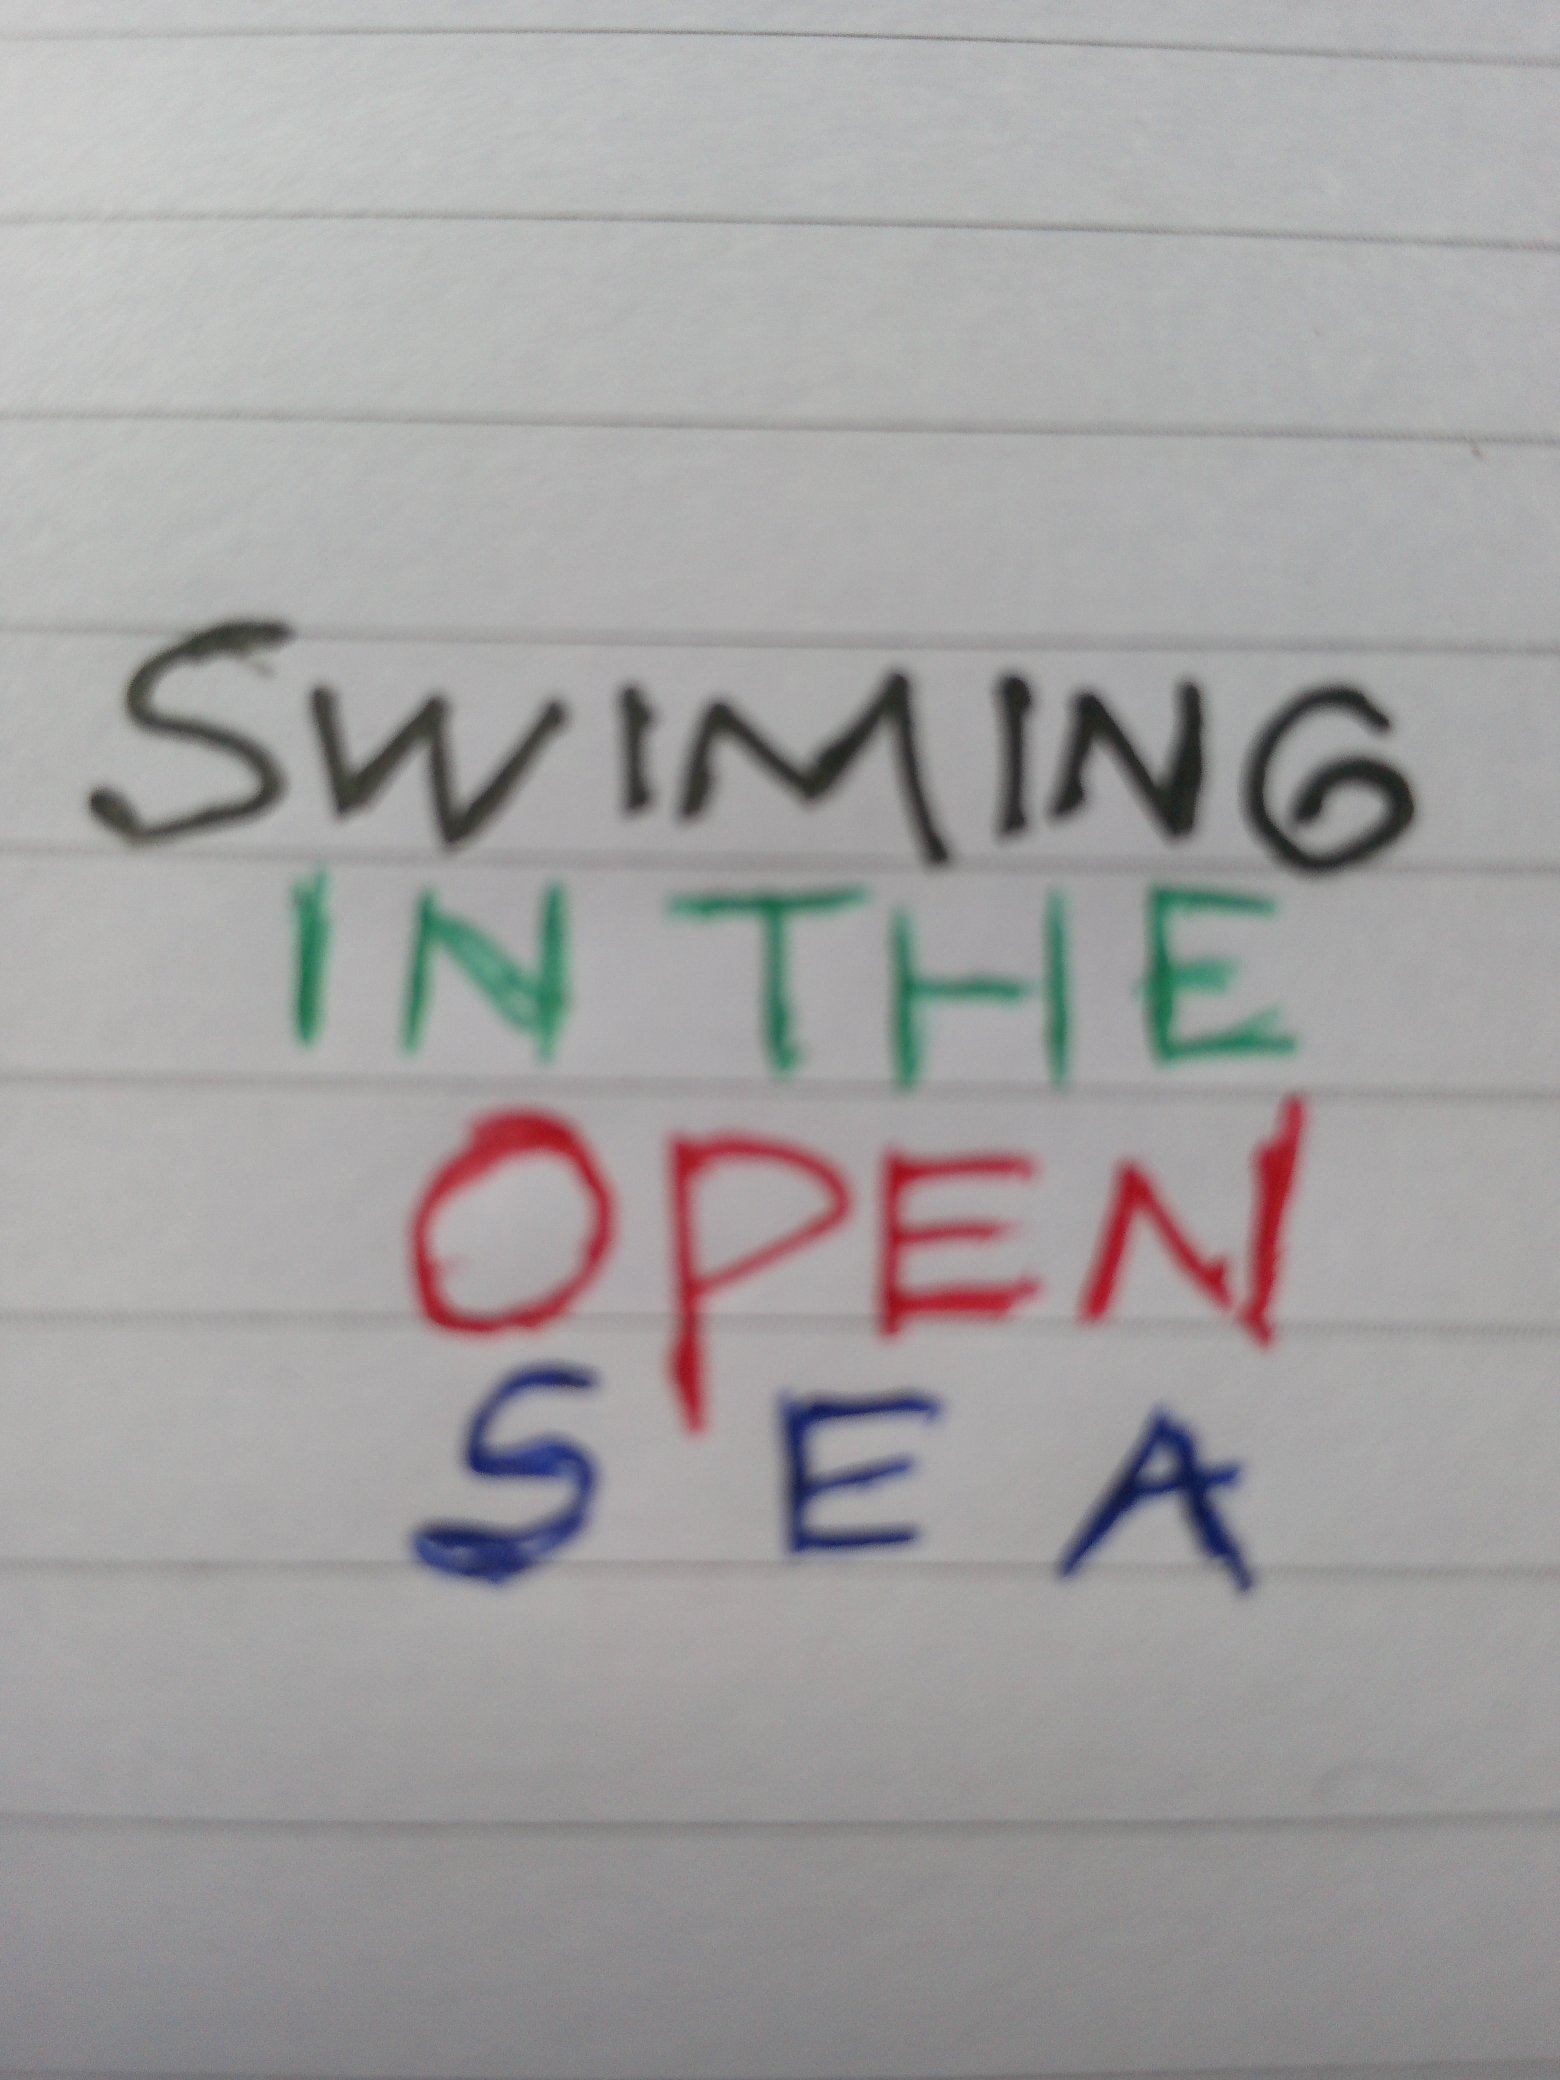 SWIMING
IN THE
OPEN
SEA